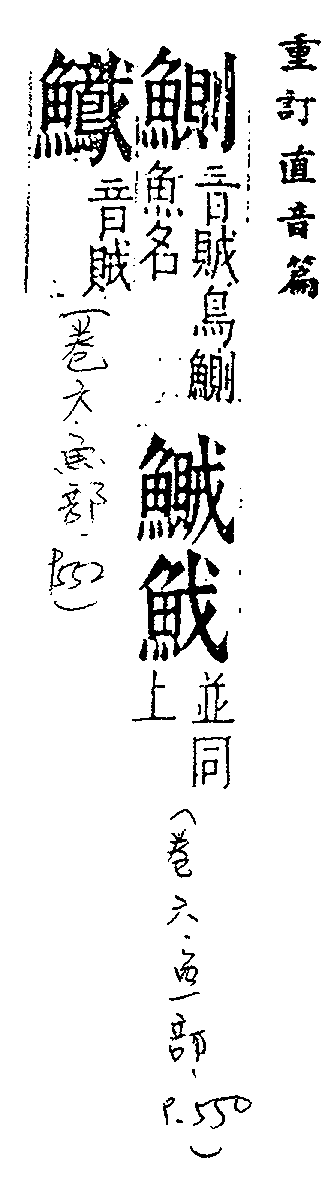 重訂直音篇
鰂音賊鳥鰂魚名鱡並同上(卷六.魚部.P.550)
音賊(卷六.魚部.P552)